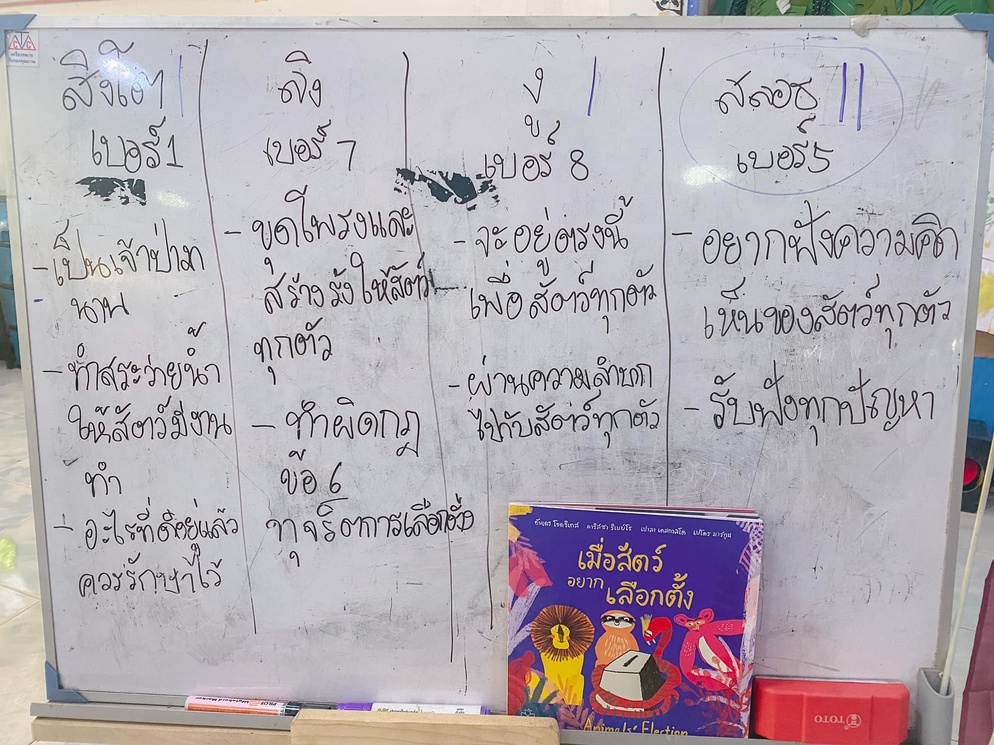 สิงโต
เบอร์ 1
- เป็นเจ้าป่ามา
นาน
- ทำสระว่ายน้ำ
ให้สัตว์มีงาน
ทำ
- อะไรที่ดีอยู่แล้ว
ควรรักษาไว้
ลิง
เบอร์ 7
- ขุดโพรงและ
สร้างรังให้สัตว์
ทุกตัว
- ทำผิดกฎ
ข้อ 6
ทุจริตการเลือกตั้ง
งู
เบอร์ 8
- จะอยู่ตรงนี้
เพื่อสัตว์ทุกตัว
- ผ่านความลำบาก
ไปกับสัตว์ทุกตัว
สลอธ
เบอร์ 5
- อยากฟังความคิด
เห็นของสัตว์ทุกตัว
- รับฟังทุกปัญหา
เมื่อสัตว์
อยาก
เลือกตั้ง
Animals' Election
PILOT
TOTO